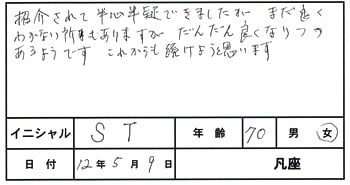 紹介されて半心半疑できましたが まだ良く
わからない所もありますが だんだん良くなりつつ
あるようです これからも続けようと思います
イニシャル ST 年齢 70 男 女
日付 12年5月9日 凡座